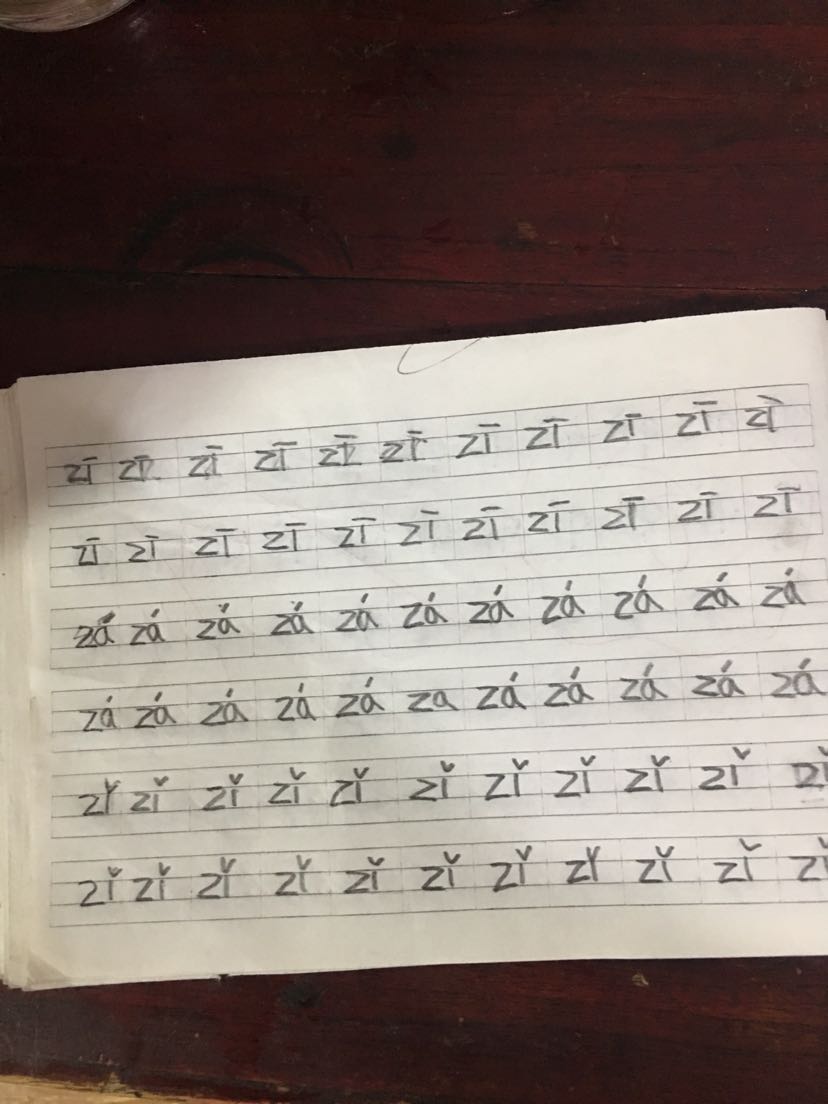 zī zī zī zī zī zī zī zī zī zī zì
zī zī zī zī zī zī zī zī zī zī zī
zá zá zǎ zǎ zá zá zá zá zá zá zá
zá zá zá zá zá za zá zá zá zá zá
zǐ zǐ zǐ zǐ zǐ zǐ zǐ zǐ zǐ zǐ zǐ
zǐ zǐ zǐ zǐ zǐ zǐ zǐ zǐ zǐ zǐ zǐ